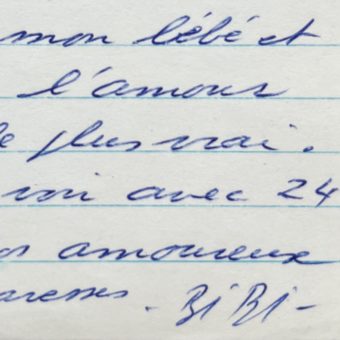 mon bébé et
l'amour
le plus vrai.
voir avec 24
amoureux
aresses - BiBi -